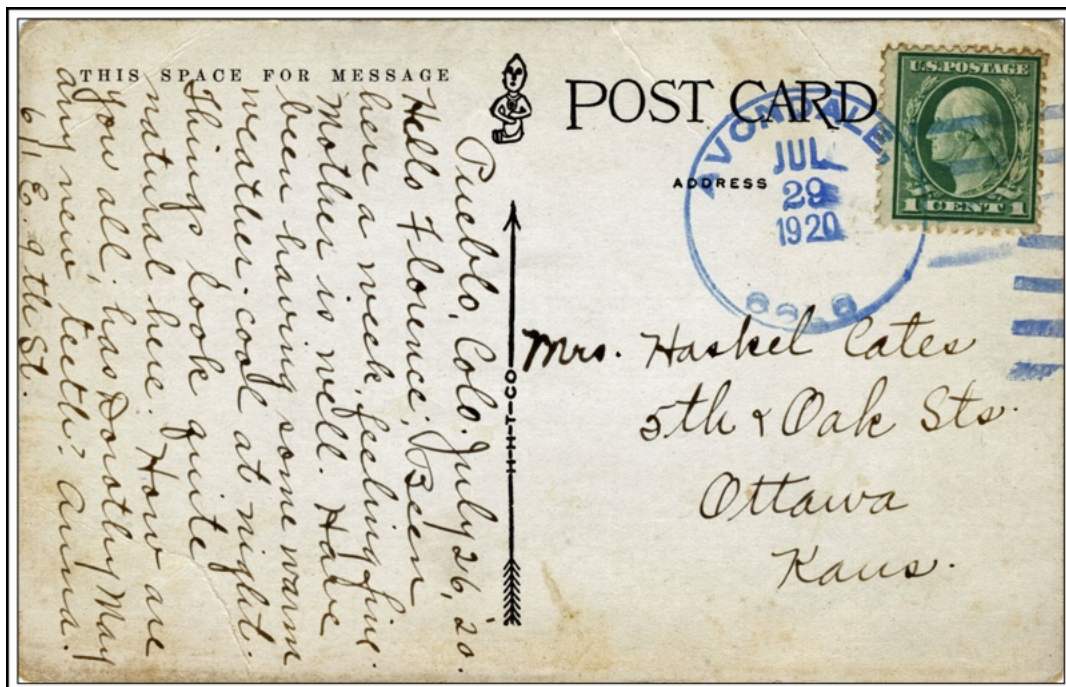 THIS SPACE FOR MESSAGE
POST CARD
ADDRESS
U.S. POSTAGE
1 CENT 1
AVONDALE,
JUL
29
1920
H-H-T-CO
Pueblo, Colo. July 26, '20.
Hello Florence; Been
here a week, feeling fine.
Mother is well. Have
been having some warm
weather, cool at night.
Things look quite
natural here. How are
you all, has Dorothy May
any new teeth? Anna.
611 E. 9th St.
Mrs. Haskel Cates
5th & Oak Sts.
Ottawa
Kans.